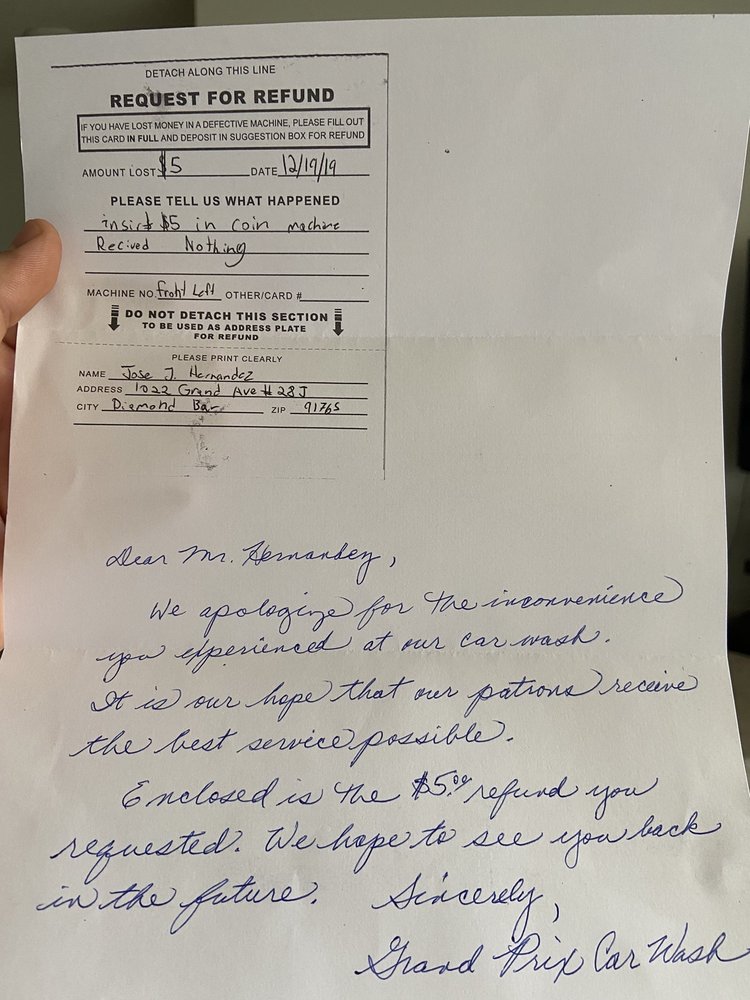 DETACH ALONG THIS LINE
REQUEST FOR REFUND
IF YOU HAVE LOST MONEY IN A DEFECTIVE MACHINE, PLEASE FILL OUT
THIS CARD IN FULL AND DEPOSIT IN SUGGESTION BOX FOR REFUND
AMOUNT LOST $5 DATE 12/19/19
PLEASE TELL US WHAT HAPPENED
$5 in coin machine
Recived Nothing
MACHINE NO. front Left OTHER/CARD #
DO NOT DETACH THIS SECTION
TO BE USED AS ADDRESS PLATE
FOR REFUND
PLEASE PRINT CLEARLY
NAME Jose J. Hernandez
ADDRESS 1022 Grand Ave # 28J
CITY Diamond Bar ZIP 91765
Dear Mr. Hernandez,
We apologize for the inconvenience
you experienced at our car wash.
It is our hope that our patrons receive
the best service possible.
Enclosed is the $5.00 refund you
requested. We hope to see you back
in the future. Sincerely,
Grand Prix Car Wash